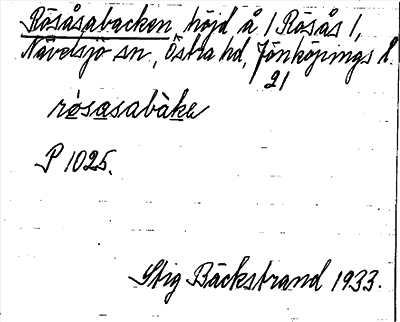 Rösåsabacken höjd å 1 Rösås 1,
Nävelsjö sn, Östra hd, Jönköpings l.
21
rösasabàka
P 1025.
Stig Bäckstrand 1933.